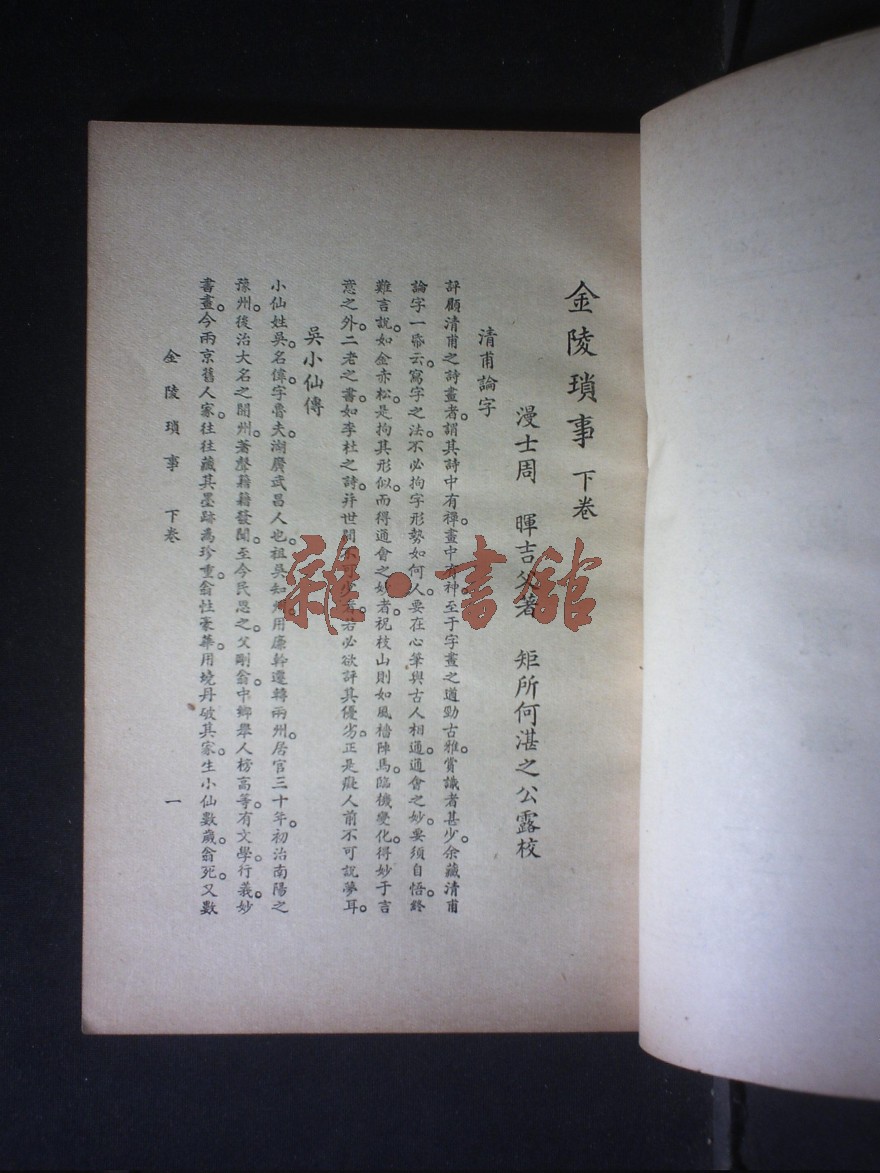 金陵瑣事 下卷
漫士周 暉吉父著 矩所何湛之公露校
清甫論字
評顧清甫之詩畫者。謂其詩中有禪。畫中有神。至于字畫之遒勁古雅。賞識者甚少。余藏清甫
論字一帋云。寫字之法。不必拘字形勢如何。人要在心筆與古人相通。通會之妙。要須自悟。終
難言說。如金赤松。是拘其形似。而得通會之妙者。祝枝山則如風檣陣馬。臨機變化。得妙于言
意之外。二老之書。如李杜之詩。并世間不可少者。若必欲評其優劣。正是癡人前不可說夢耳。
吳小仙傳
小仙姓吳。名偉。字魯夫。湖廣武昌人也。祖吳知州。用廉幹遷轉兩州。居官三十年。初治南陽之
豫州。後治大名之開州。著聲籍籍發聞。至今民思之。父剛翁。中鄉舉人榜高等。有文學行義。妙
書畫。今兩京舊人家。往往藏其墨跡為珍重。翁性豪華。用燒丹破其家。生小仙數歲。翁死。又數
金陵瑣事 下卷 一
雜·書館